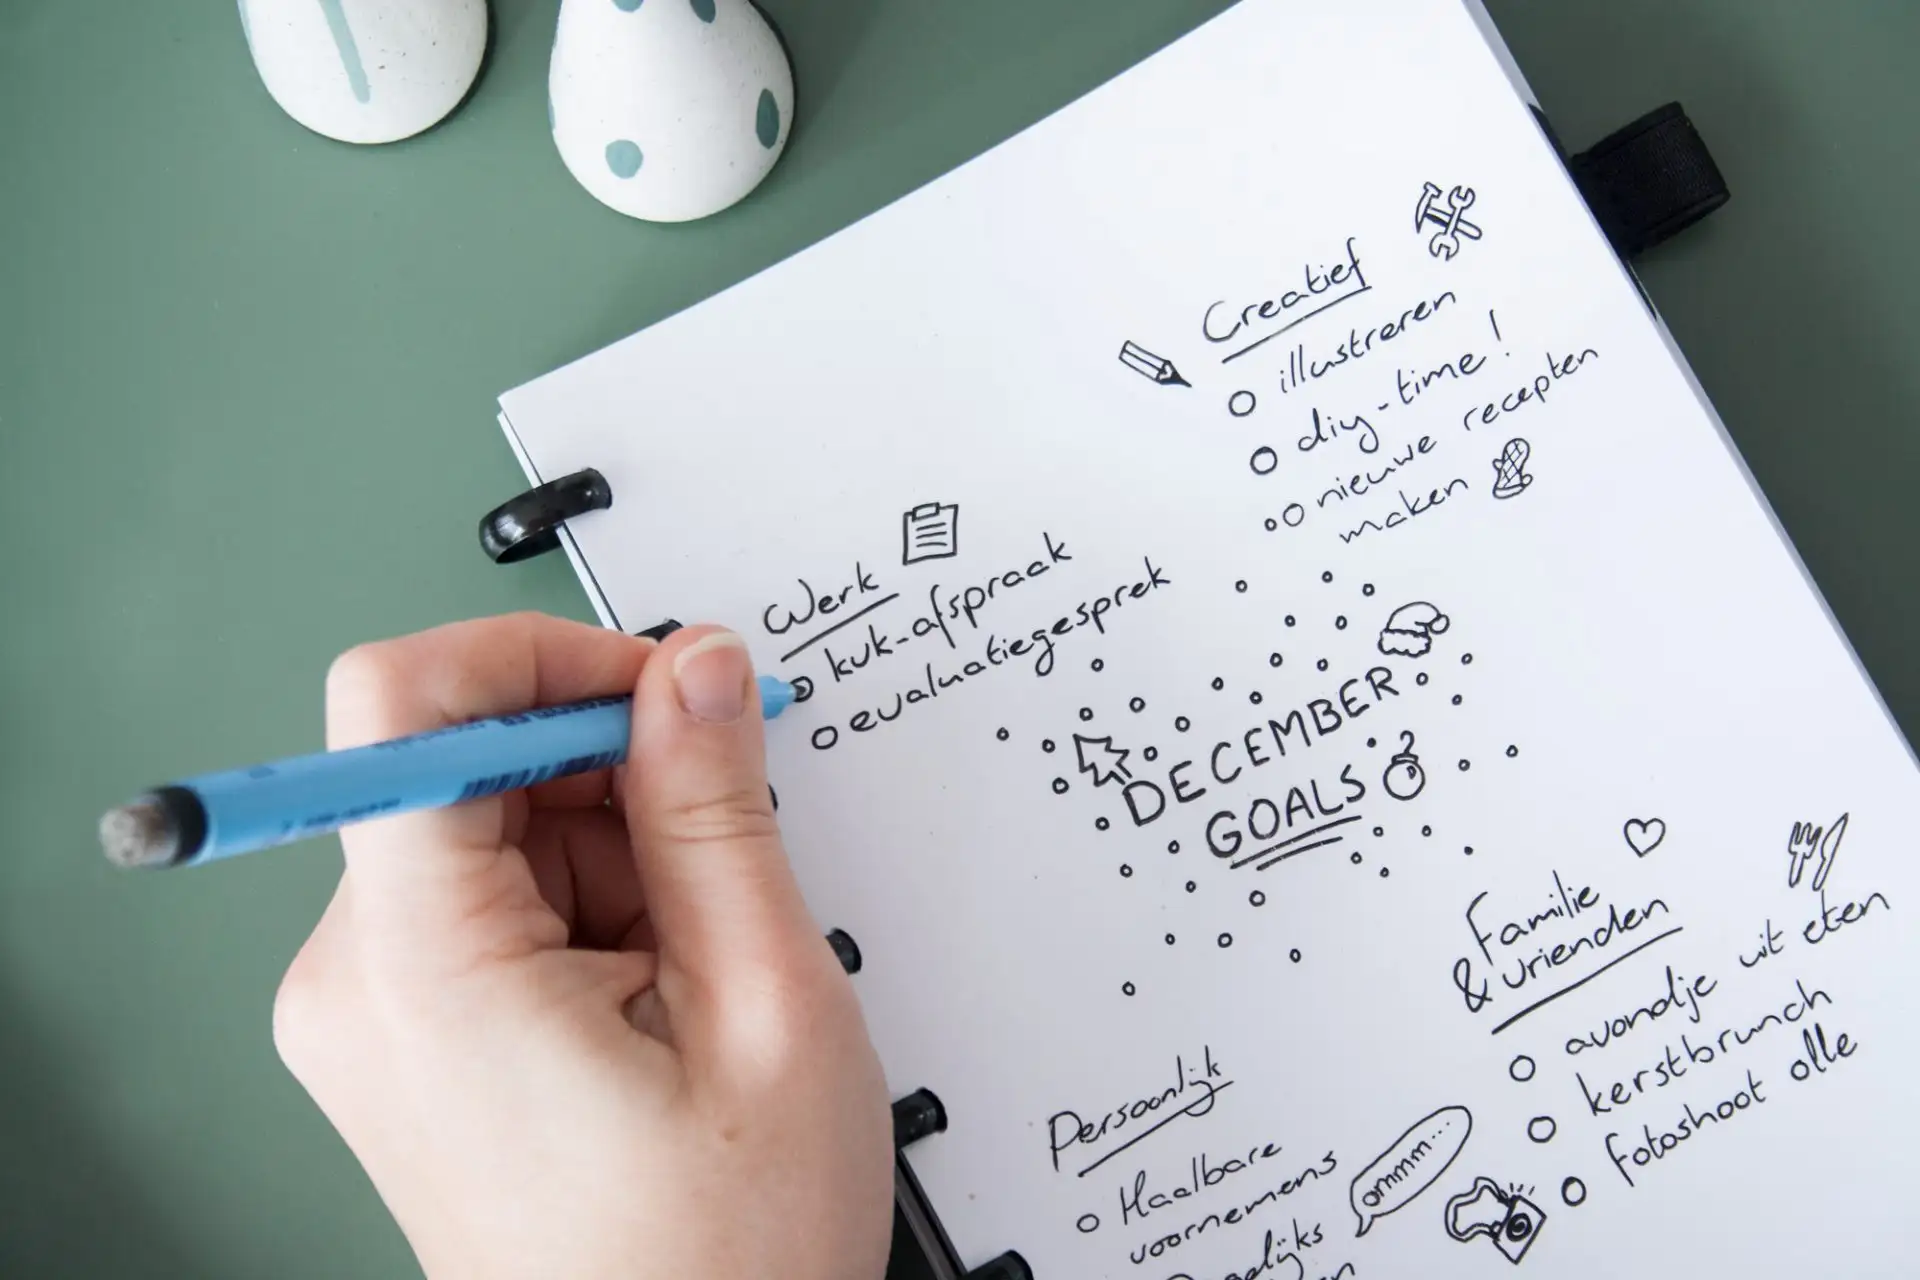 Creatief
illustreren
diy-time!
nieuwe recepten
maken
Werk
kvk-afspraak
evaluatiegesprek
DECEMBER
GOALS
Familie
& vrienden
avondje uit eten
kerstbrunch
fotoshoot olle
Persoonlijk
Haalbare
voornemens
ommm...